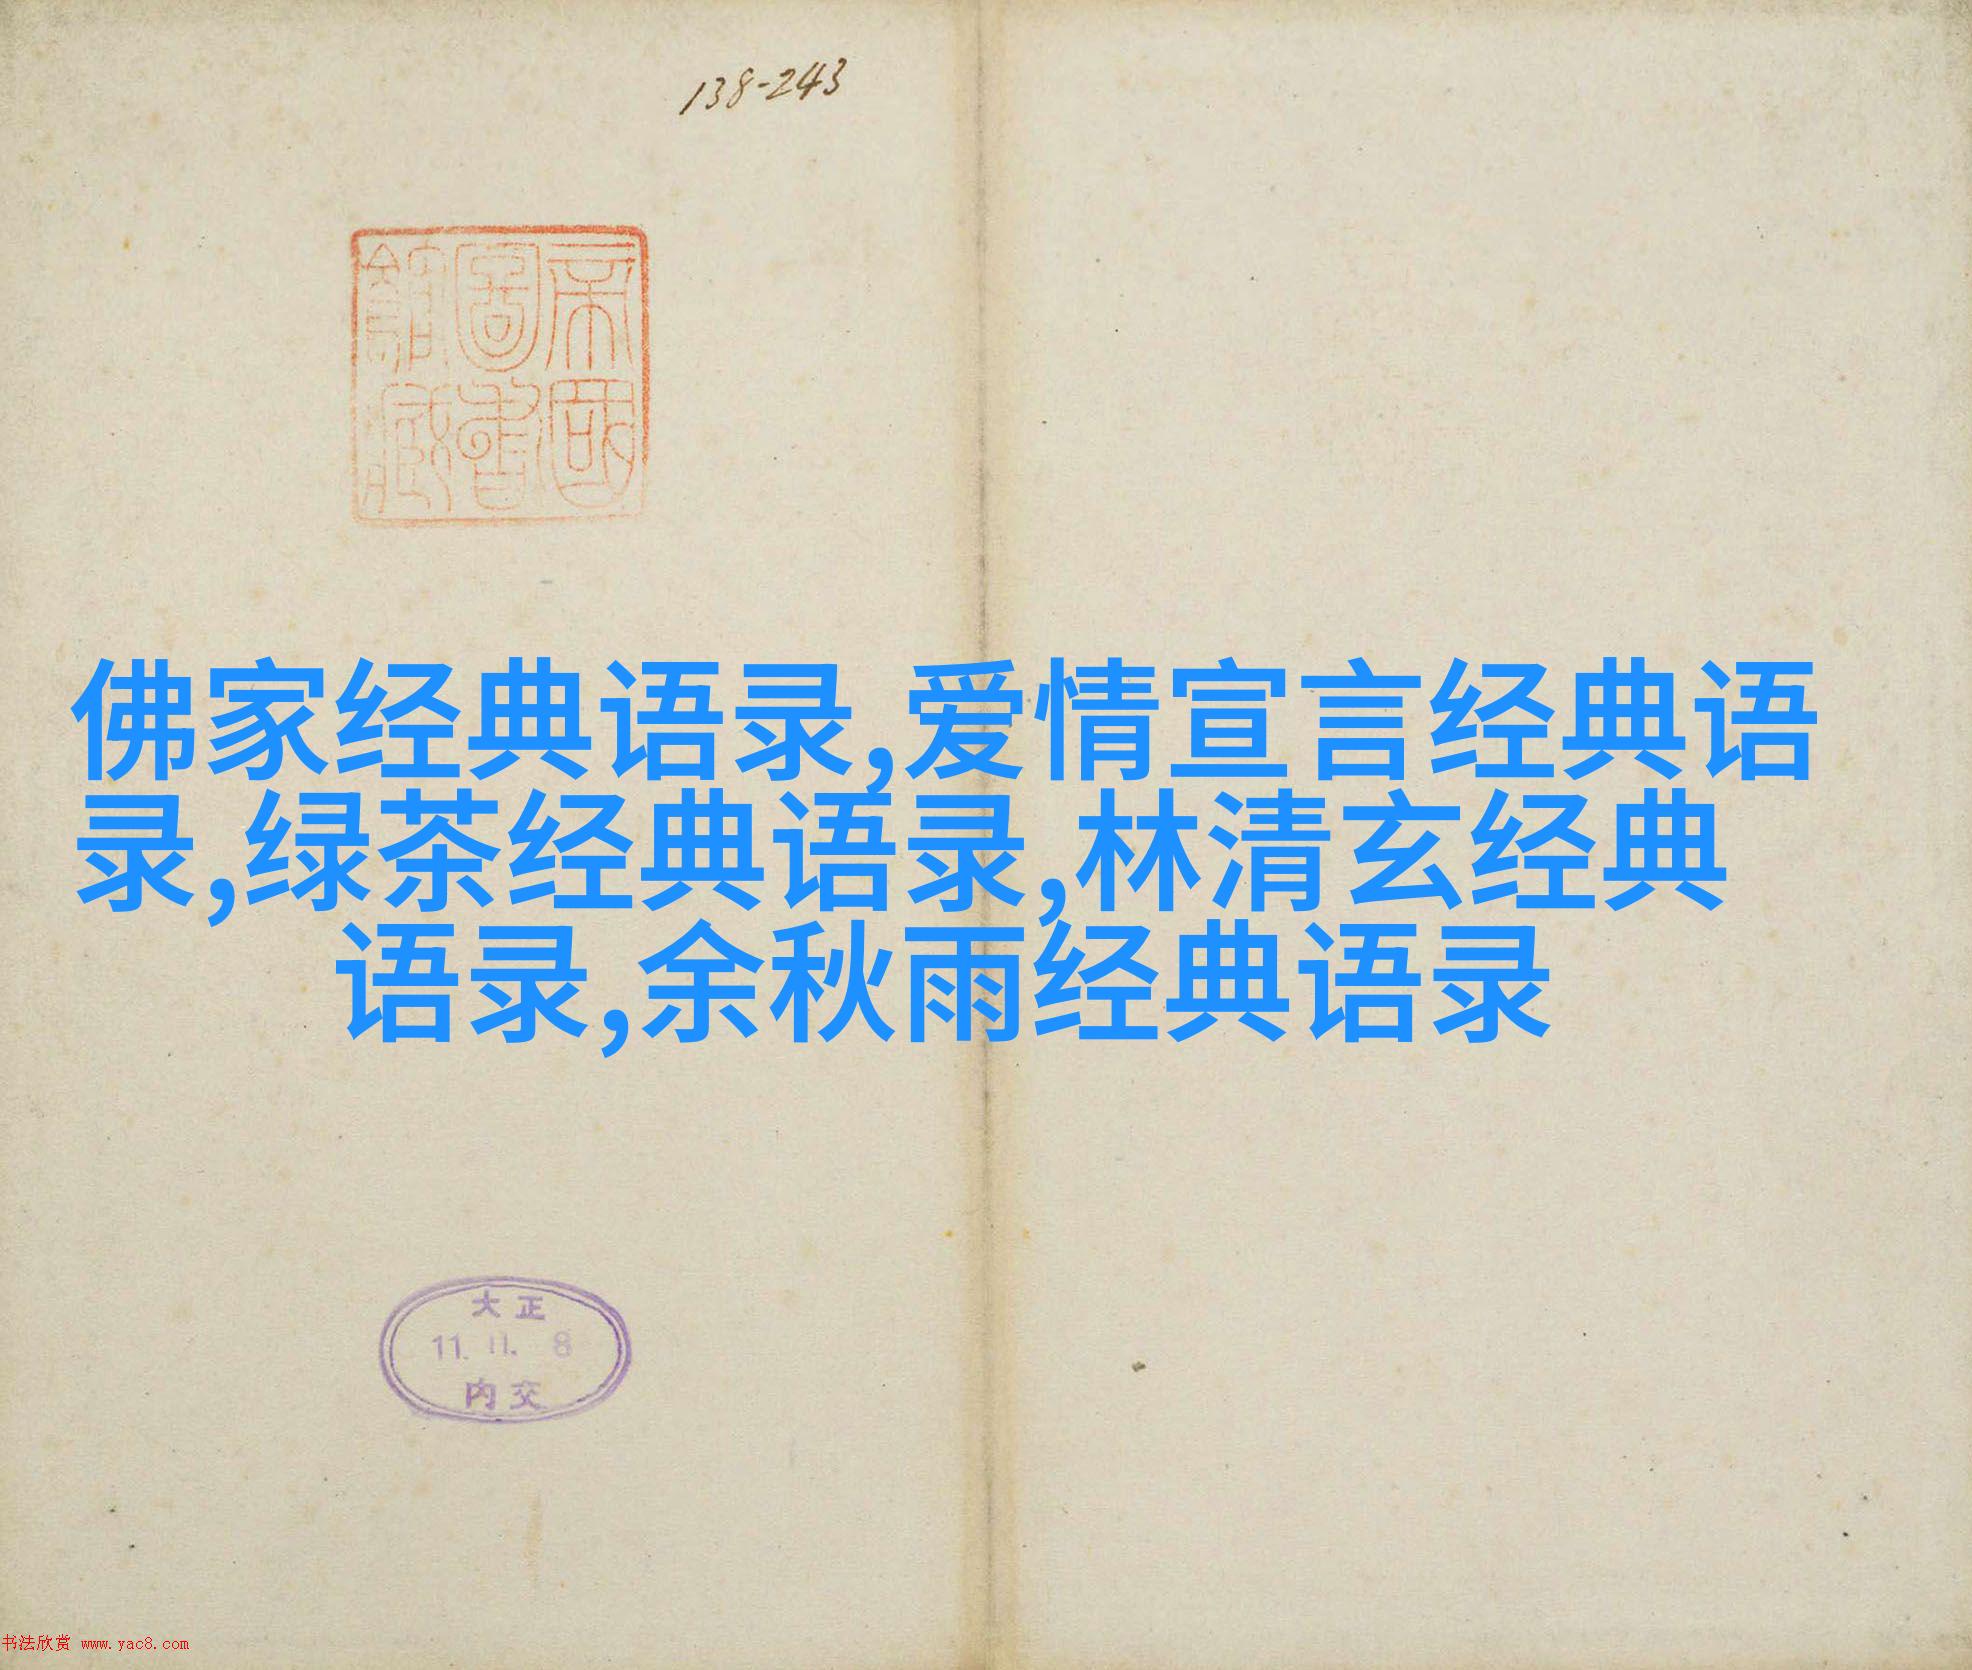 138-243
帝國
圖書
館藏
佛家经典语录,爱情宣言经典语
录,绿茶经典语录,林清玄经典
语录,余秋雨经典语录
大正
11. 11. 8
内交
书法欣赏 www.yac8.com